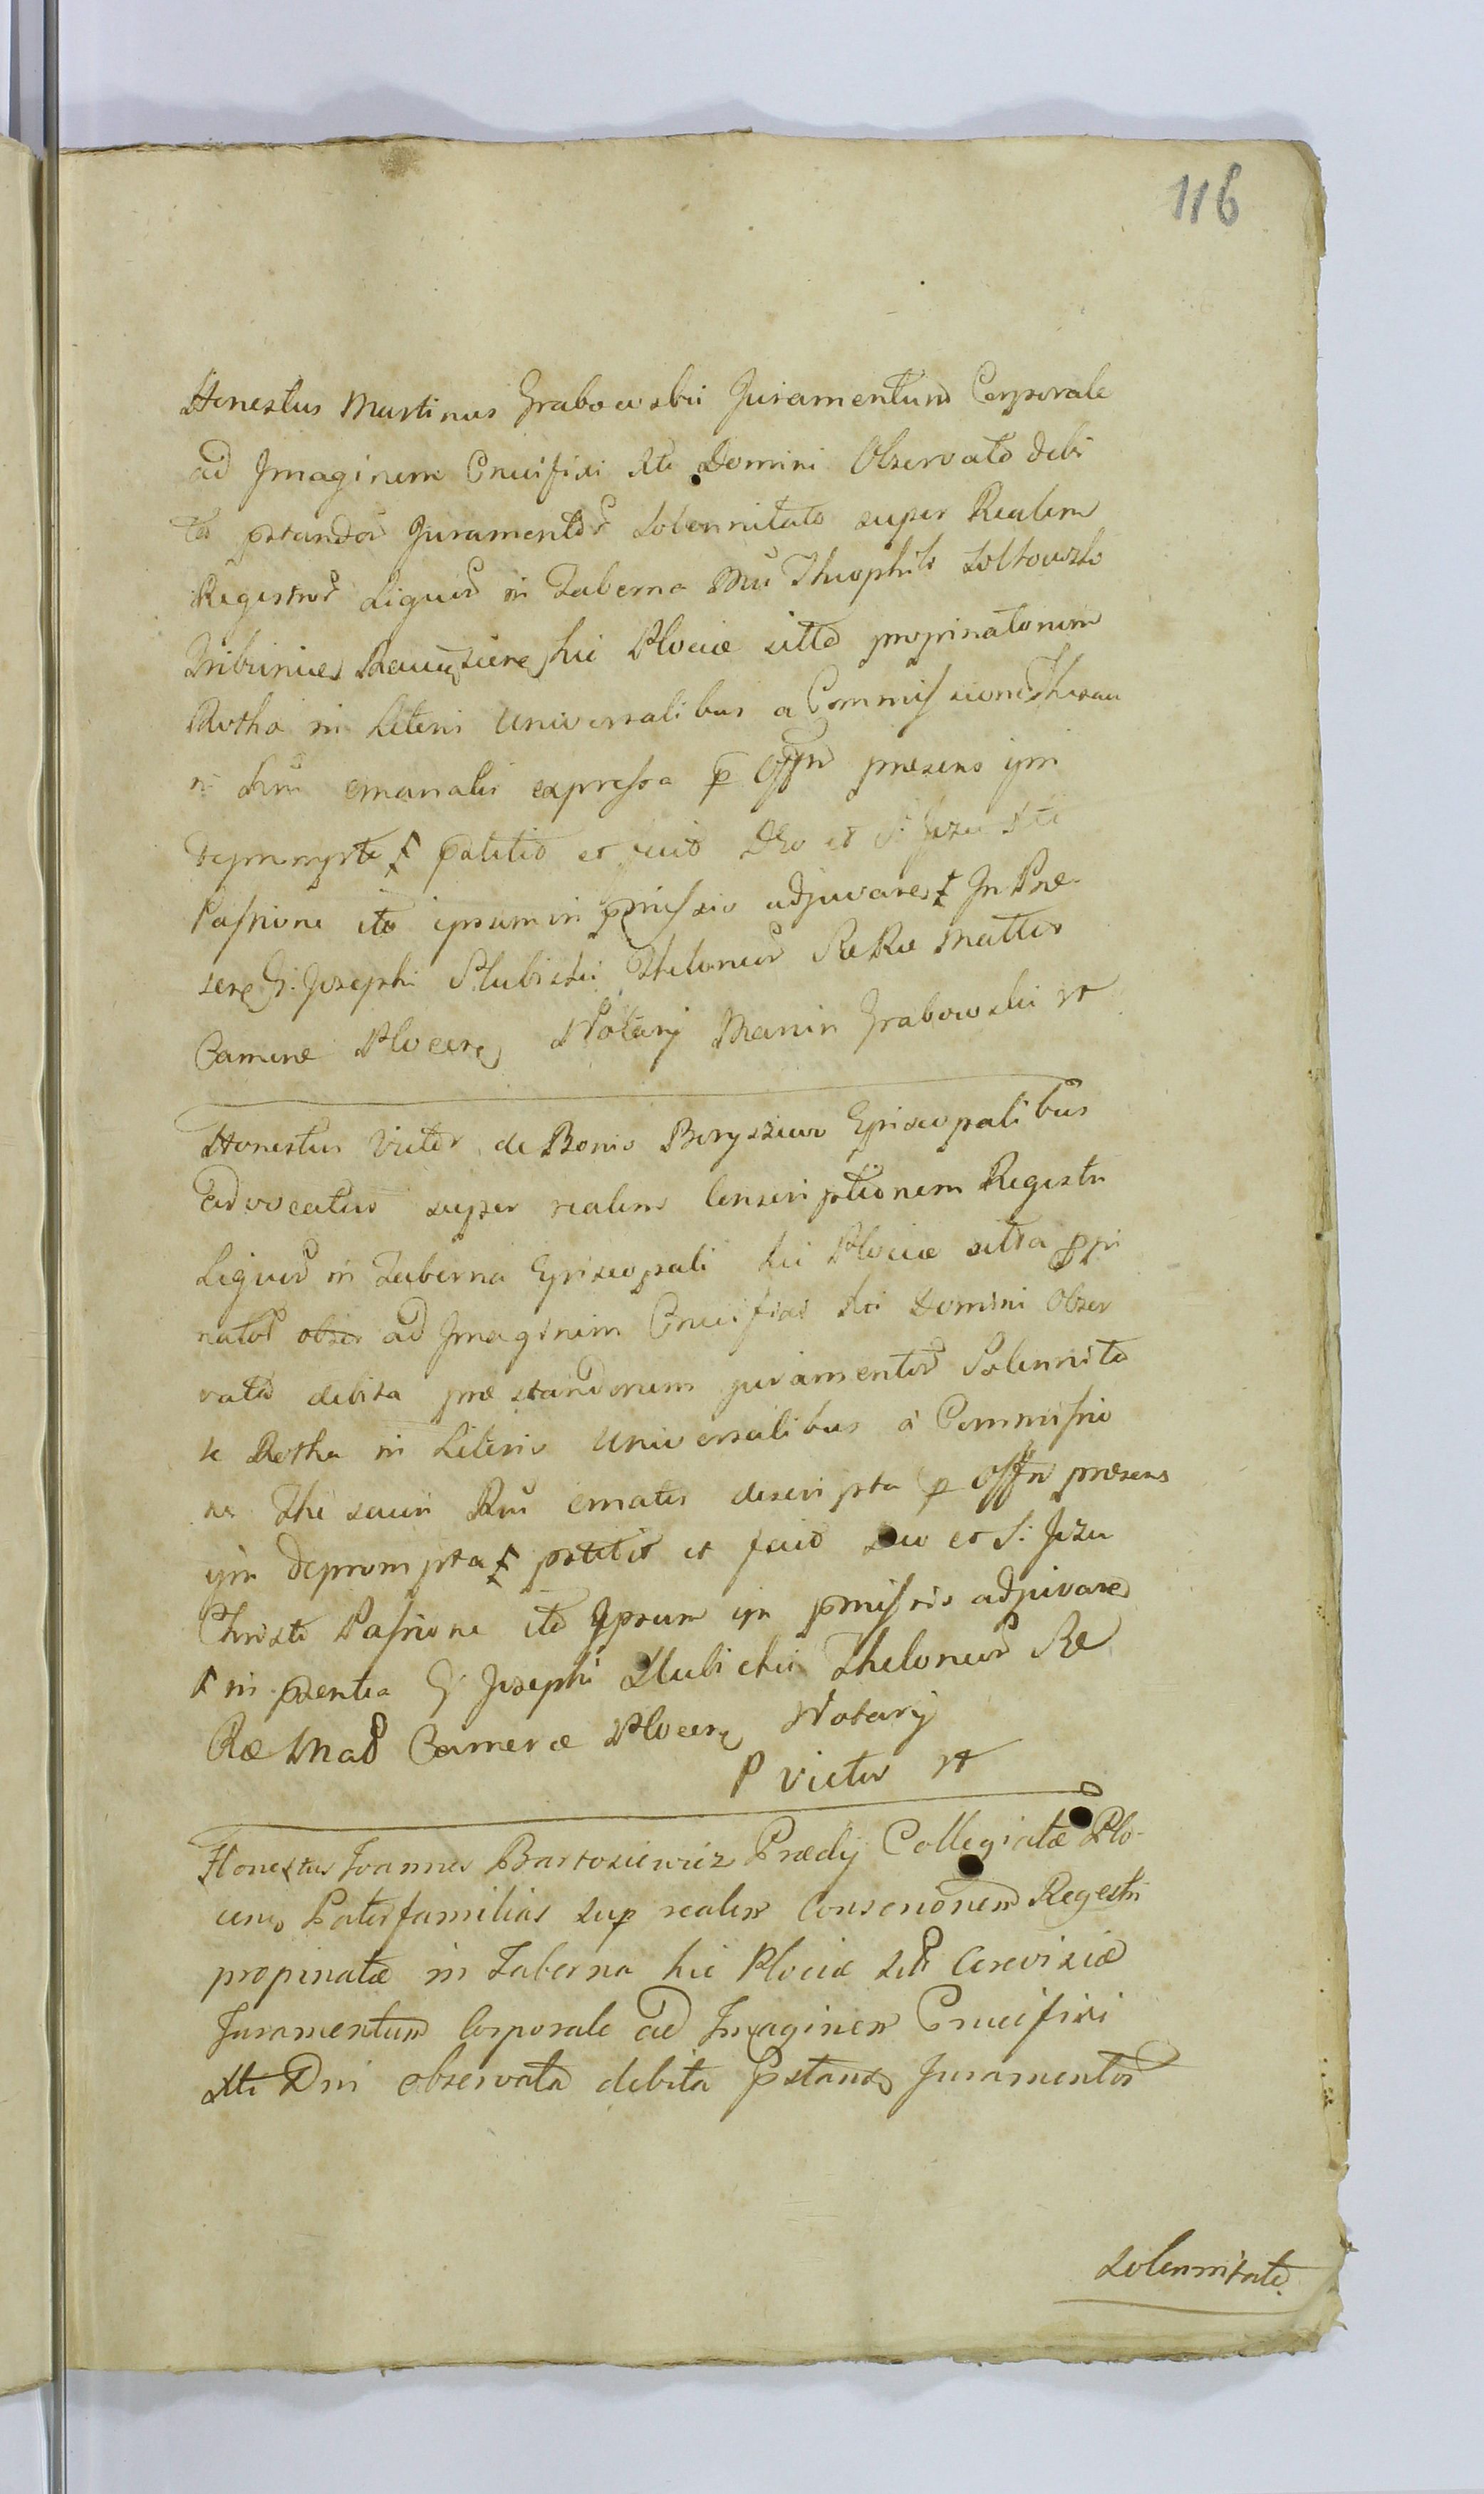 116
Honestus Martinus Grabowski Juramentum Corporale
ad Imaginem Crucifixi Xti Domini Observato debi
ta pstandor Juramentor Solennitate super Realem
Registror Liquor in Taberna Theophili Soltowski
Tribuni hic Plociæ sitta propinatorum
Rotha in Literis Universalibus a Commissione Thesau
ri emanatis expressa p Offm præsens ipsi
deprompta patitit et sicut Deo et S: Jezu Xti
Passione ita ipsum in pmissis adjuvare In Præ
Josephi Slubicki Theloneor Matts
Cameræ Plocen Notarij Marcin Grabowski
Honestus Victor de Bonis Boryszewo Episcopalibus
advocatus super realem Conscriptionem Registri
Liquor in Taberna Episcopali hic Plociæ sitta ppi
nator obser ad Imaginem Crucifixi Xti Domini Obser
vata debita præstandorum juramentor Solennita
te Rotha in Literis Universalibus à Commissio
ne Thesauri Rni ematis descripta p Offm præsens
ipsi deprompta pstitit et sicut Deo et S: Jezu
Christi Passione ita Ipsum in pmissis adjuvare
in pzentia G Josephi Slubicki Theloneor Re
Ræ Matt Cameræ Plocen Notarij
P Victor
Honestus Joannes Bartosiewicz Prædij Collegiatæ Plo-
cen Paterfamilias sup realem Conscrionem Regestri
propinatæ in Taberna hic Plociæ sitt Cerevisiæ
Juramentum Corporale ad Imaginem Crucifixi
Xti Dni observata debita pstand Juramentor
Solennitate